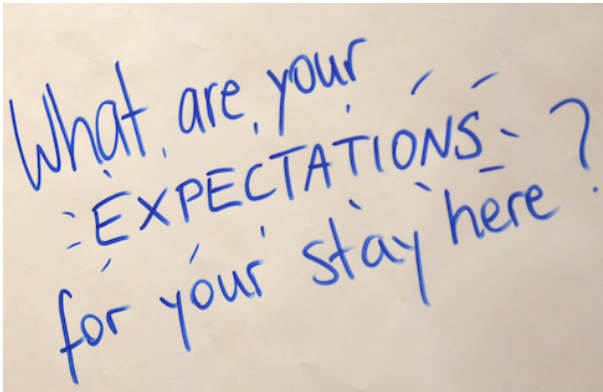 What are your
EXPECTATIONS
for your stay here?